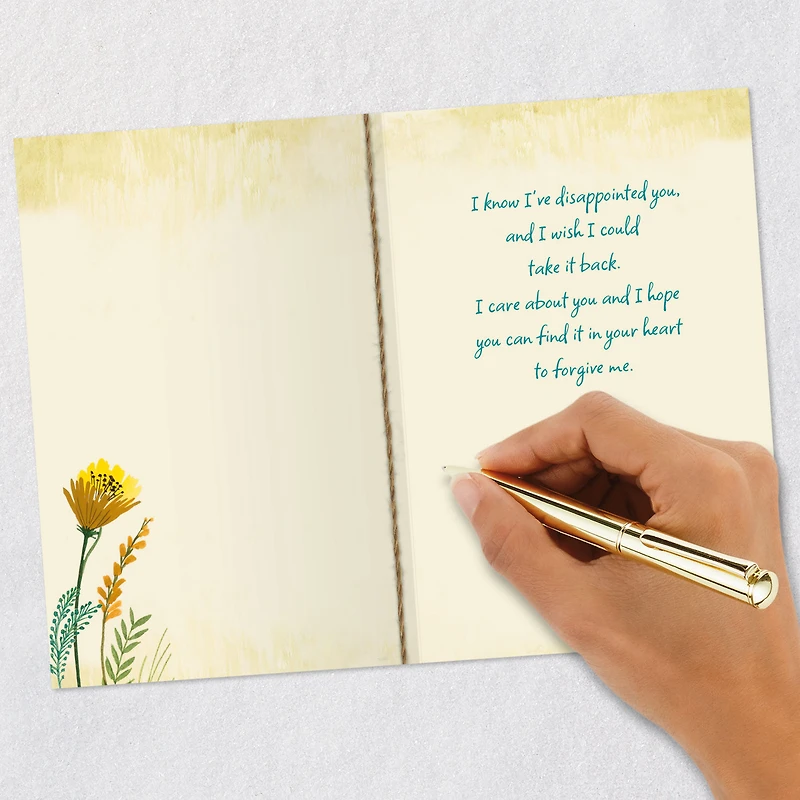 I know I've disappointed you,
and I wish I could
take it back.
I care about you and I hope
you can find it in your heart
to forgive me.